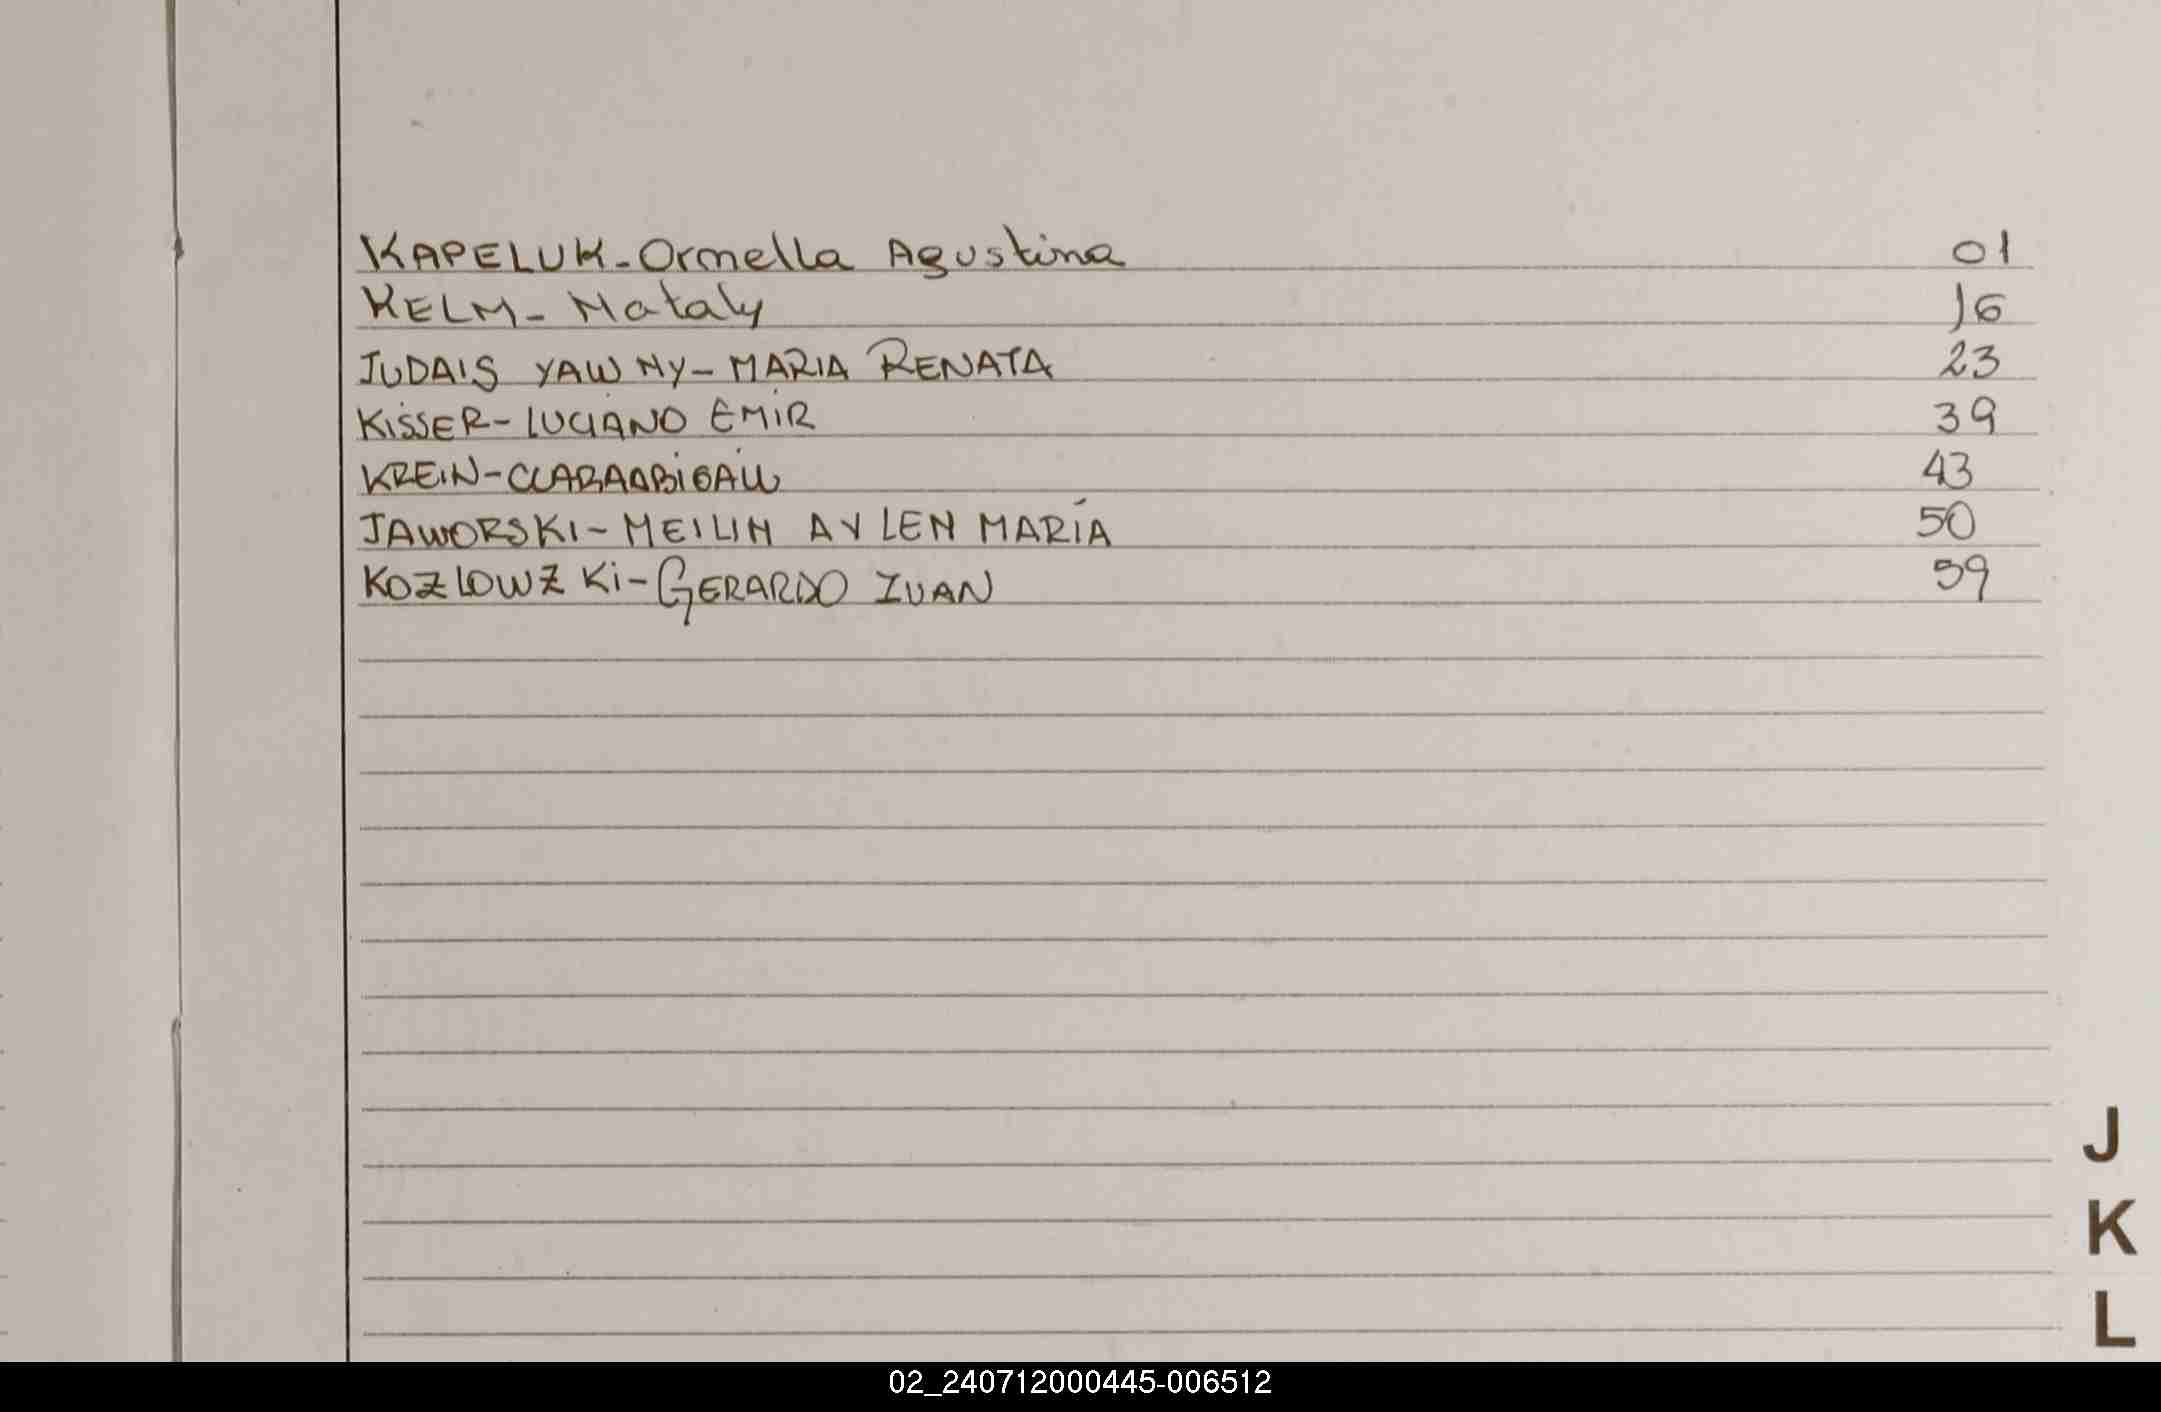 KAPELUK-Ornella Agustina 01
KELM-Nataly 16
JUDAIS YAWNY-MARIA RENATA 23
KiSSER-LUCIANO EMiR 39
KREiN-CLARAABiGAiL 43
JAWORSKI-MEILIN AYLEN MARÍA 50
KOZLOWZKi-GERARDO IVAN 59
J
K
L
02_240712000445-006512